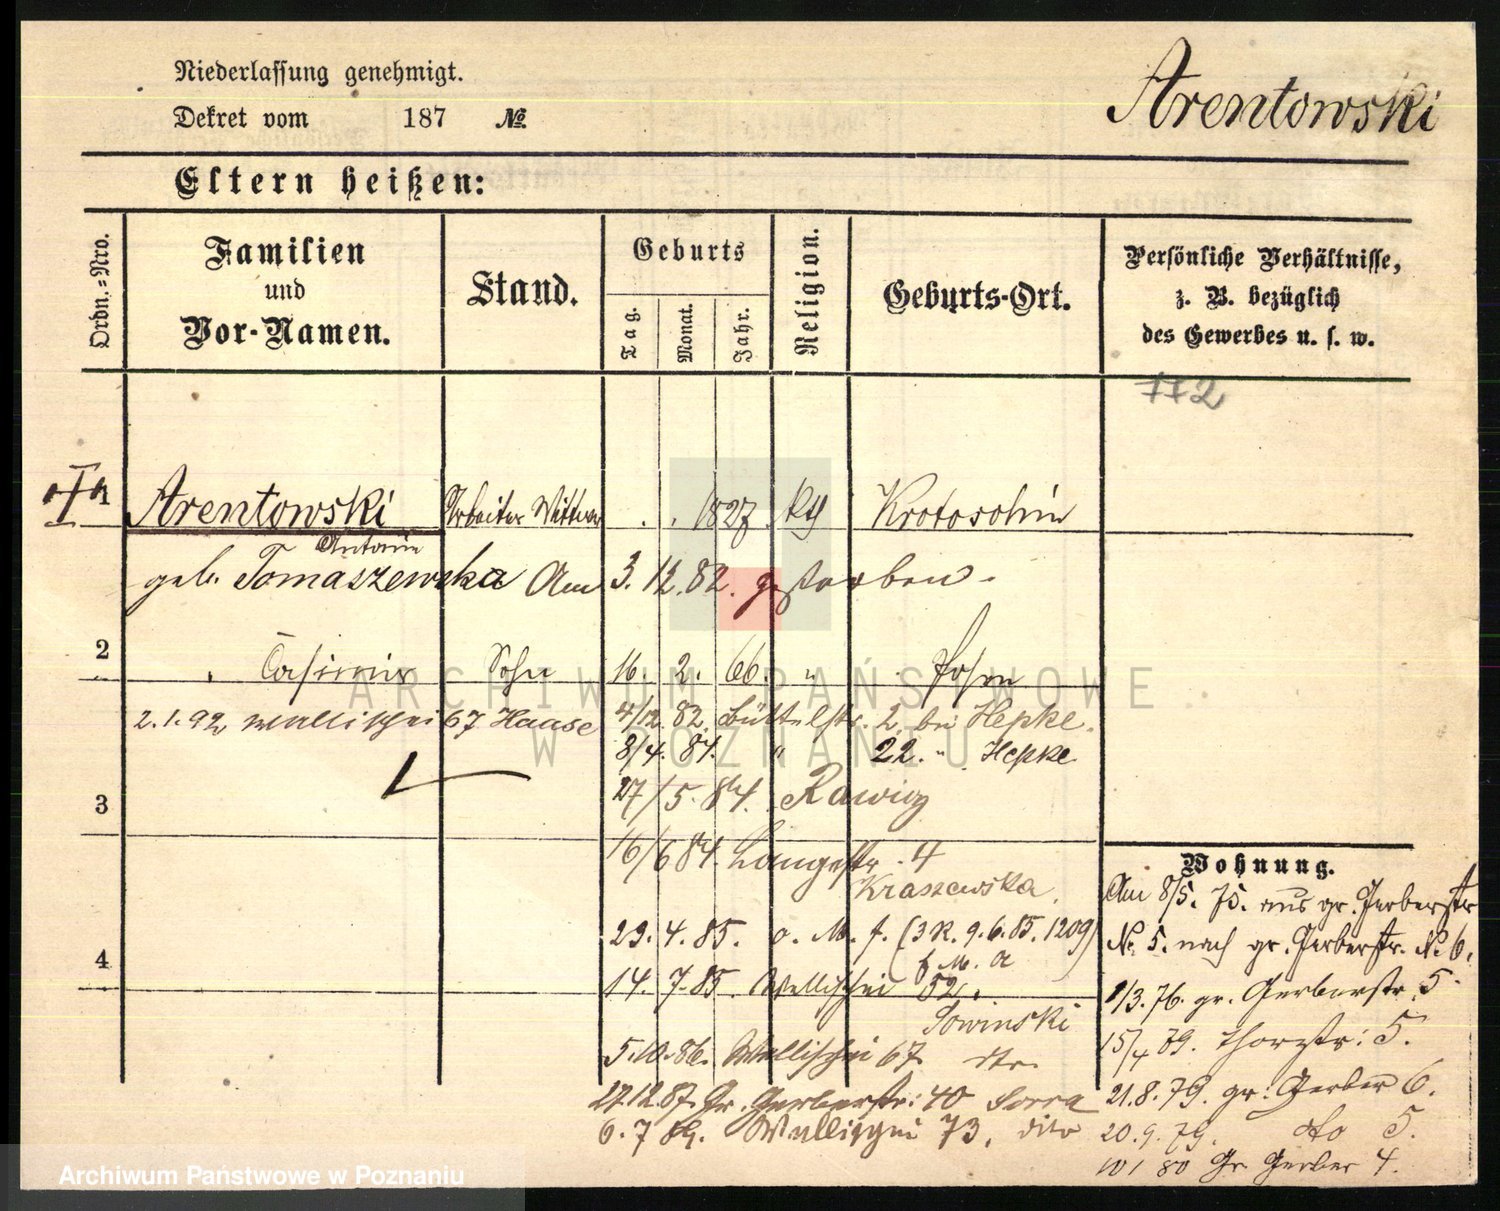 Niederlassung genehmigt.
Dekret vom 187 №
Arentowski
Eltern heißen:
Ordn.=Nro.
Familien
und
Vor-Namen.
Stand.
Geburts
Tag.
Monat.
Jahr.
Religion.
Geburts-Ort.
Persönliche Verhältnisse,
z. B. bezüglich
des Gewerbes u. s. w.
112
1 Arentowski Arbeiter Wittwe 1827 Krotoschin
Antonie
geb. Tomaszewska Am 3. 12. 82. gestorben.
2 Casimir Sohn 16. 2. 66. " Posen
2.1.92 Wallischei 67 Haase 4/12. 82. Büttelstr. 2. bei Hepke.
8/4. 84. " 22. " Hepke
27/5. 84. Rawicz
3
16/6 84. Langestr. 4
Kraszewska.
Wohnung.
Am 8/5. 75. aus gr. Gerberstr
23. 4. 85. o. M. f. (3 R. 9. 6. 85. 1209)
No. 5. nach gr. Gerberstr. No. 6.
f. M. a
4
14. 7. 85. Wallischei 52.
1/3. 76. gr. Gerberstr. 5.
Sowinski
15/4 79. Thorstr: 5.
5.10.86. Wallischei 67. dto.
21.8.79. gr. Gerber 6.
27.12.87. Gr. Gerberstr: 40
6. 7 89. Wallischei 73. dito
20. 9. 79. dto 5.
10 1 80 Gr. Gerber 4.
ARCHIWUM PAŃSTWOWE
W POZNANIU
Archiwum Państwowe w Poznaniu